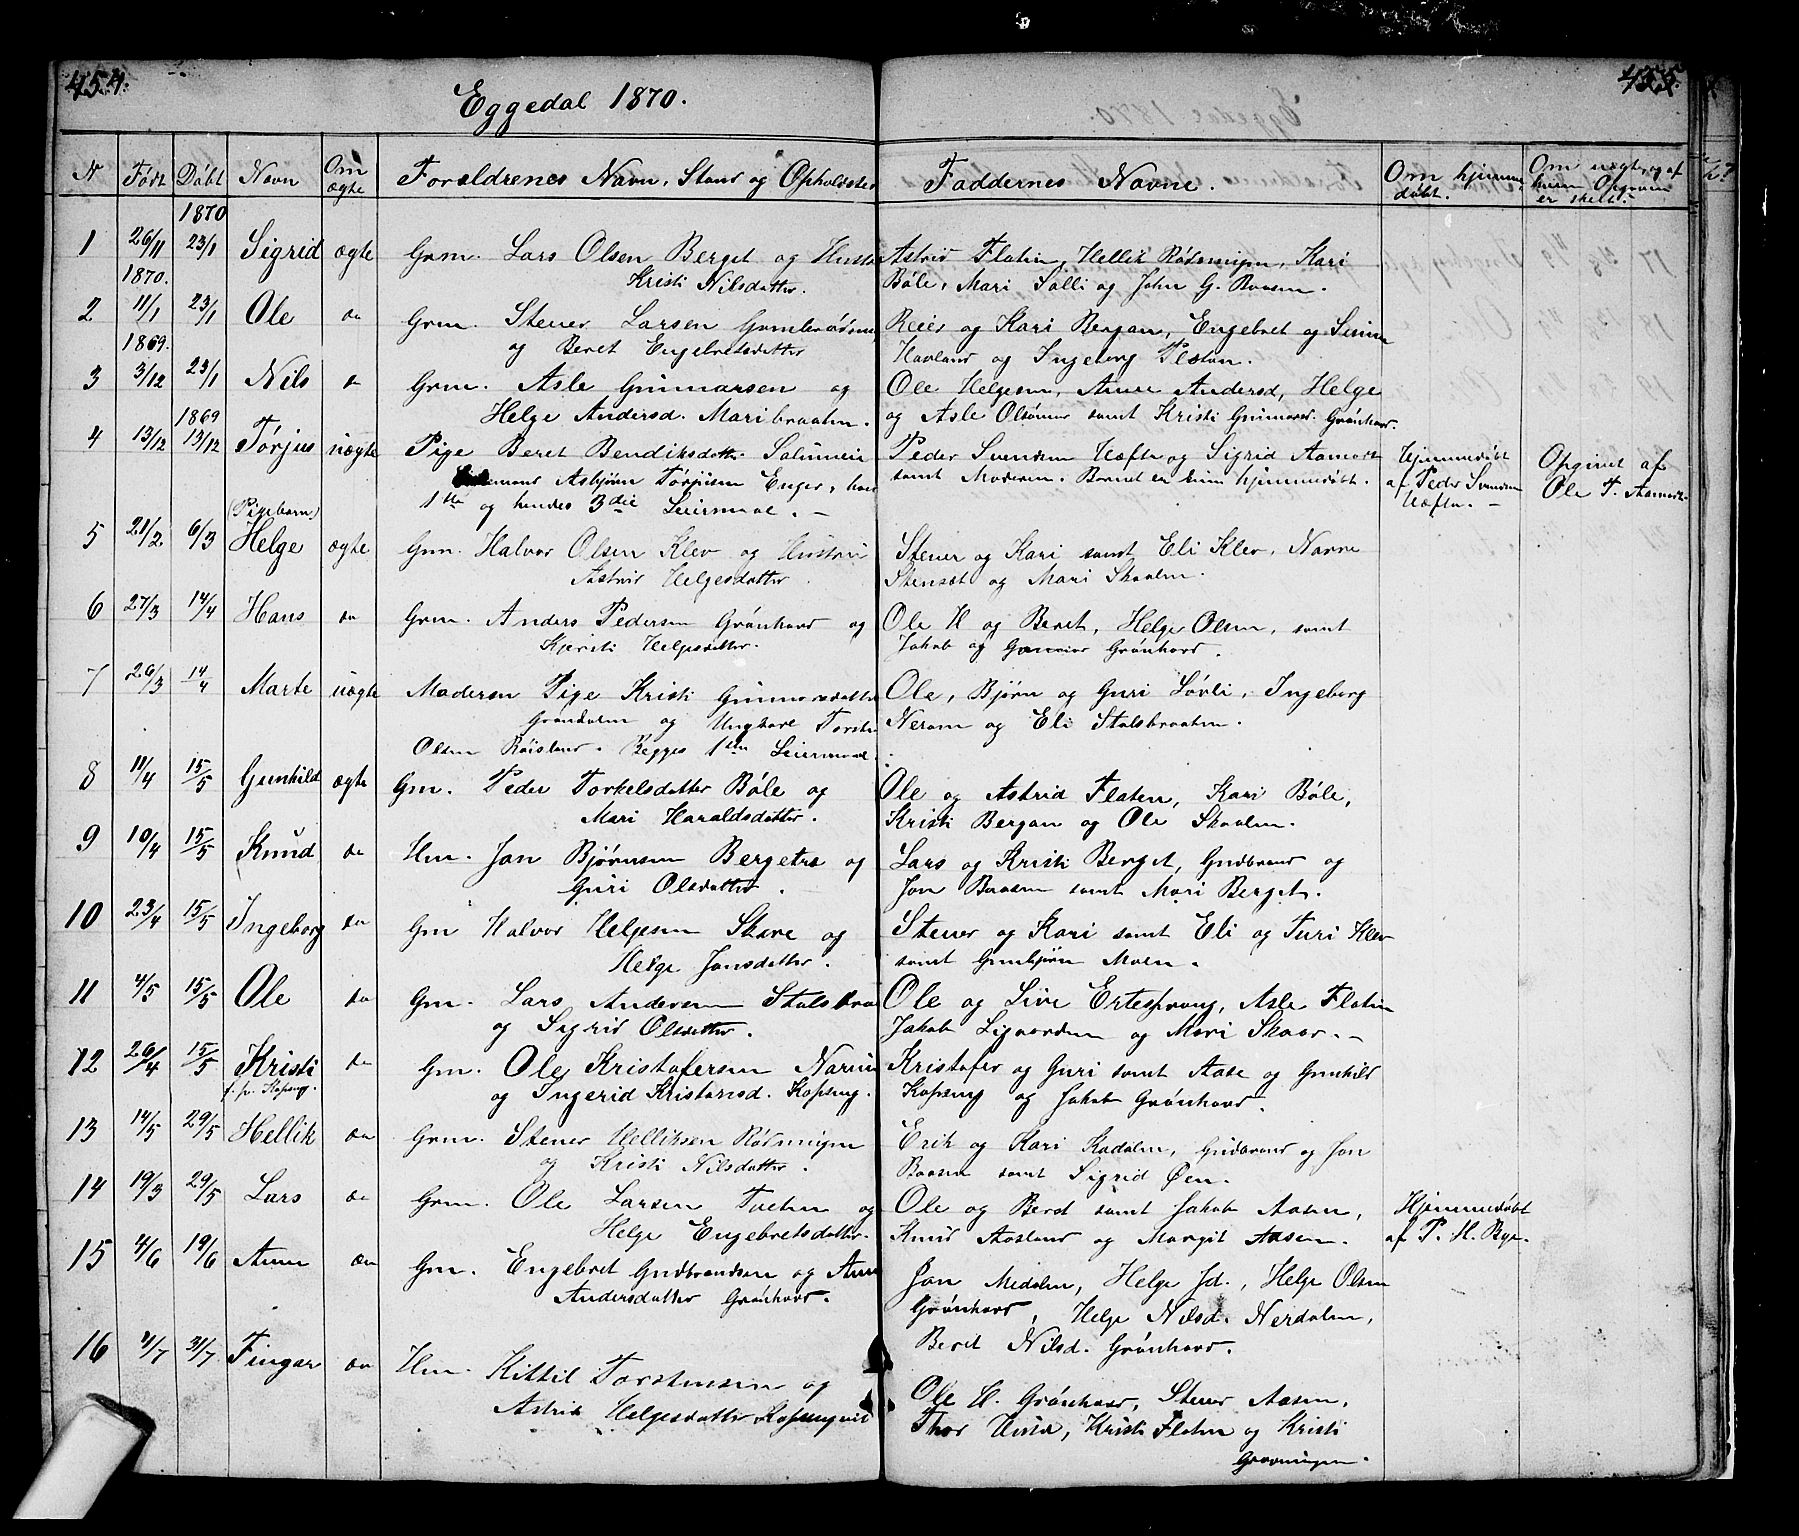 454.
455.
Eggedal 1870.
N Født Døbt Navn Om ægte Forældrenes Navn, Stand og Opholdsted Faddernes Navne. Om hjemmedøbt. Om uægte, og af hvem Opgaven er skeet.
1870
1 26/11 23/1 Sigrid ægte Grm. Lars Olsen Berget og Hustru Astrid Flatin, Hellik Rødningen, Kari
Kristi Nilsdatter. Bøle, Mari Solli og John G. Braaen.
1870.
2 11/1 23/1 Ole do Grm. Stener Larsen Reier og Kari Bergan, Engebret og
og Beret Engebretsdatter Havland og Ingeborg Plassen.
1869.
3 3/12 23/1 Nils do Grm. Asle Gunnarsen og Ole Helgesen, Anne Andersd, Helge
Helge Andersd. Maribraaten. og Asle Olsønner samt Kristi Gunnarsd. Grønhovd.
1869
4 13/12 13/12 Torjus uægte Pige Beret Bendiksdatter Peder Svendsen og Sigrid Aamodt Hjemmedøbt Opgivet af
Asbjørn Torjusen Enger, hans samt Moderen. Barnet er kun hjemmedøbt. af Peder Svendsen Ole T. Aamodt.
1ste og hendes 3die Leiermaal. -
(Pigebarn)
5 21/2 6/3 Helge ægte Gm. Halvor Olsen Klev og Hustru Stener og Kari samt Eli Klev, Narve
Astrid Helgesdatter. og Mari Skaalen.
6 27/3 14/4 Hans do Grm. Anders Pedersen Grønhovd og Ole H og Beret, Helge Olsen, samt
Kjersti Helgesdatter. Jakob og Grønhovd.
7 26/3 14/4 Marte uægte Moderen Pige Kristi Gunnarsdatter Ole, Bjørn og Guri Løvli, Ingeborg
Grøndalen og Ungkarl Torsten Neraen og Eli Stalsbraaten.
Olsen Røisland. Begges 1ste Leiermaal
8 11/4 15/5 Gunhild ægte Gm. Peder Torkelsdatter Bøle og Ole og Astrid Flaten, Kari Bøle,
Mari Haraldsdatter. Kristi Bergan og Ole Skaalen.
9 10/4 15/5 Knud do Hm. Jon Bjørnsen Bergetre og Lars og Kristi Berget, Gudbrand og
Guri Olsdatter. Jon Braaen samt Mari Berget.
10 23/4 15/5 Ingeborg do Gm Halvor Helgesen Skare og Stener og Kari samt Eli og Turi Klev
Helge Jonsdatter. samt Gunbjørn Moen.
11 4/5 15/5 Ole do Gm. Lars Andersen Stalsbraa Ole og Live Ertesprang, Asle Flatin
og Sigrid Olsdatter. Jakob og Mari Skaar. -
12 26/4 15/5 Kristi do Gm. Ole Kristofersen Kristofer og Guri samt Aase og Gunhild
og Ingerid Kristensd. Kopseng. Kopseng og Jakob Grønhovd.
13 14/5 29/5 Hellik do Grm. Stener Helliksen Rødningen Erik og Kari Kadalen, Gudbrand og Jon
og Kristi Nilsdatter. Braaen samt Sigrid Øen.
14 19/3 29/5 Lars do Grm. Ole Larsen og Ole og Beret samt Jakob Aasen, Hjemmedøbt
Helge Engebretsdatter. Knud Aasland og Margit Aasen. af P. H. Bye.
15 4/6 19/6 Anne do Gm. Engebret Gudbrandsen og Anne Jon Medalen, Helge Jd., Helge Olsen
Andersdatter Grønhovd. Grønhovd, Helge Nilsd. Nerdalen,
Beret Nilsd. Grønhovd.
16 4/7 31/7 Fingar do Hm. Kittil Torstensen og Ole H. Grønhovd, Stener Aasen,
Astrid Helgesdatter Thor Kristi Flaten og Kristi
Grovningen.